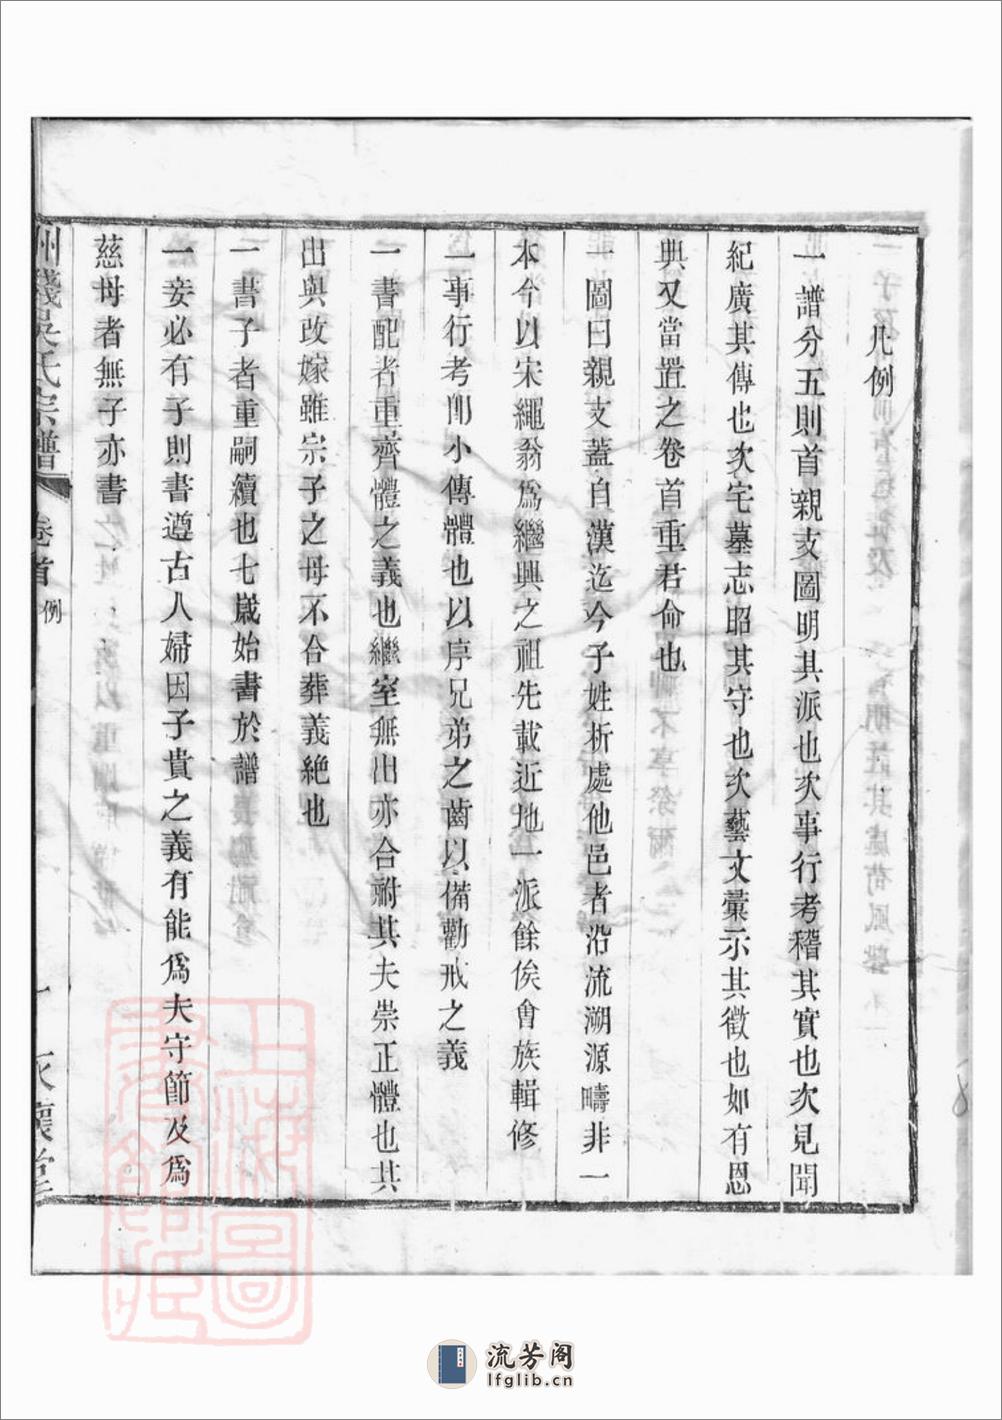 凡例
一譜分五則首親支圖明其派也次事行考稽其實也次見聞
紀廣其傳也次宅墓志昭其守也次藝文彙示其徵也如有恩
典又當置之卷首重君命也
一圖曰親支蓋自漢迄今子姓析處他邑者沿流溯源疇非一
本今以宋繩翁爲繼興之祖先載近地一派餘俟會族輯修
一事行考卽小傳體也以序兄弟之齒以備勸戒之義
一書配者重齊體之義也繼室無出亦合祔其夫崇正體也其
出與改嫁雖宗子之母不合葬義絶也
一書子者重嗣續也七歲始書於譜
一妾必有子則書遵古人婦因子貴之義有能爲夫守節及爲
慈母者無子亦書
州錢吳氏宗譜 卷首 例 一
上海圖書館藏
流芳阁
lfglib.cn